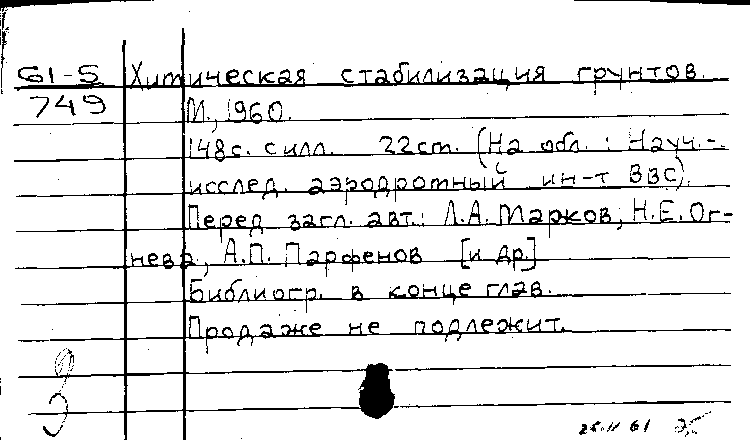 61-5 Химическая стабилизация грунтов.
749 М., 1960.
148с. с илл. 22cm. (На обл.: Науч.-
исслед. аэродротный ин-т ВВС).
Перед загл. авт.: Л.А. Марков, Н.Е. Ог-
нева, А.П. Парфенов [и др.]
Библиогр. в конце глав.
Продаже не подлежит.
3
25.11 61